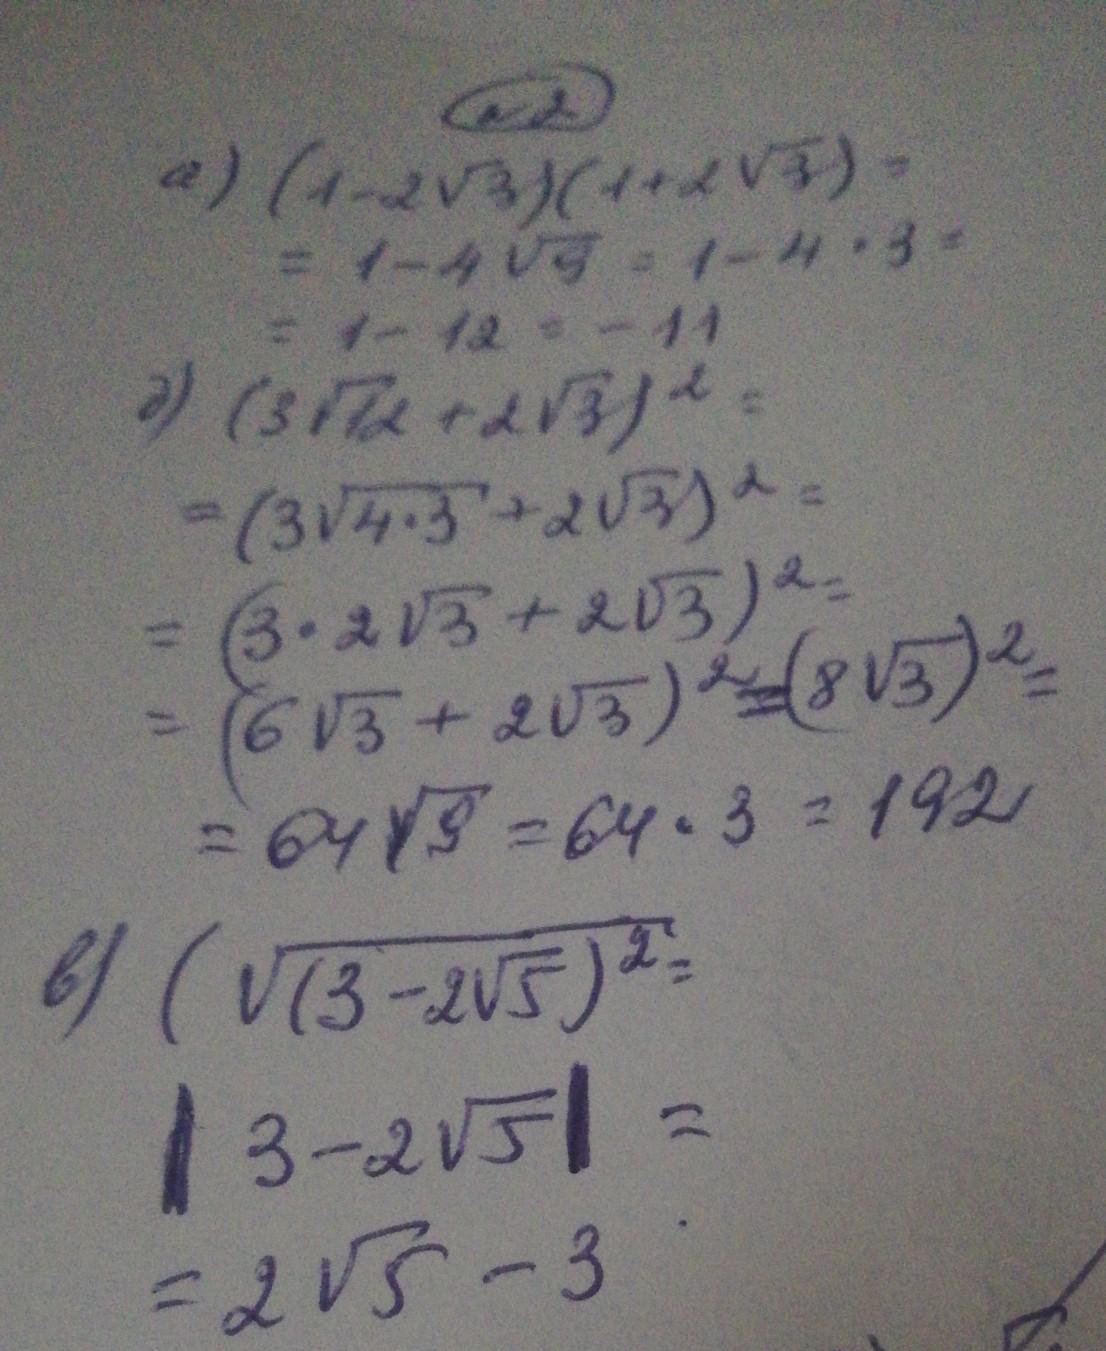 №2
а) (1-2√3)(1+2√3) =
= 1-4√9 = 1-4·3 =
= 1-12 = -11
б) (3√12 + 2√3)² =
= (3√4·3 + 2√3)² =
= (3·2√3 + 2√3)² =
= (6√3 + 2√3)² = (8√3)² =
= 64√9 = 64·3 = 192
в) (√(3-2√5)² =
|3-2√5| =
= 2√5 - 3